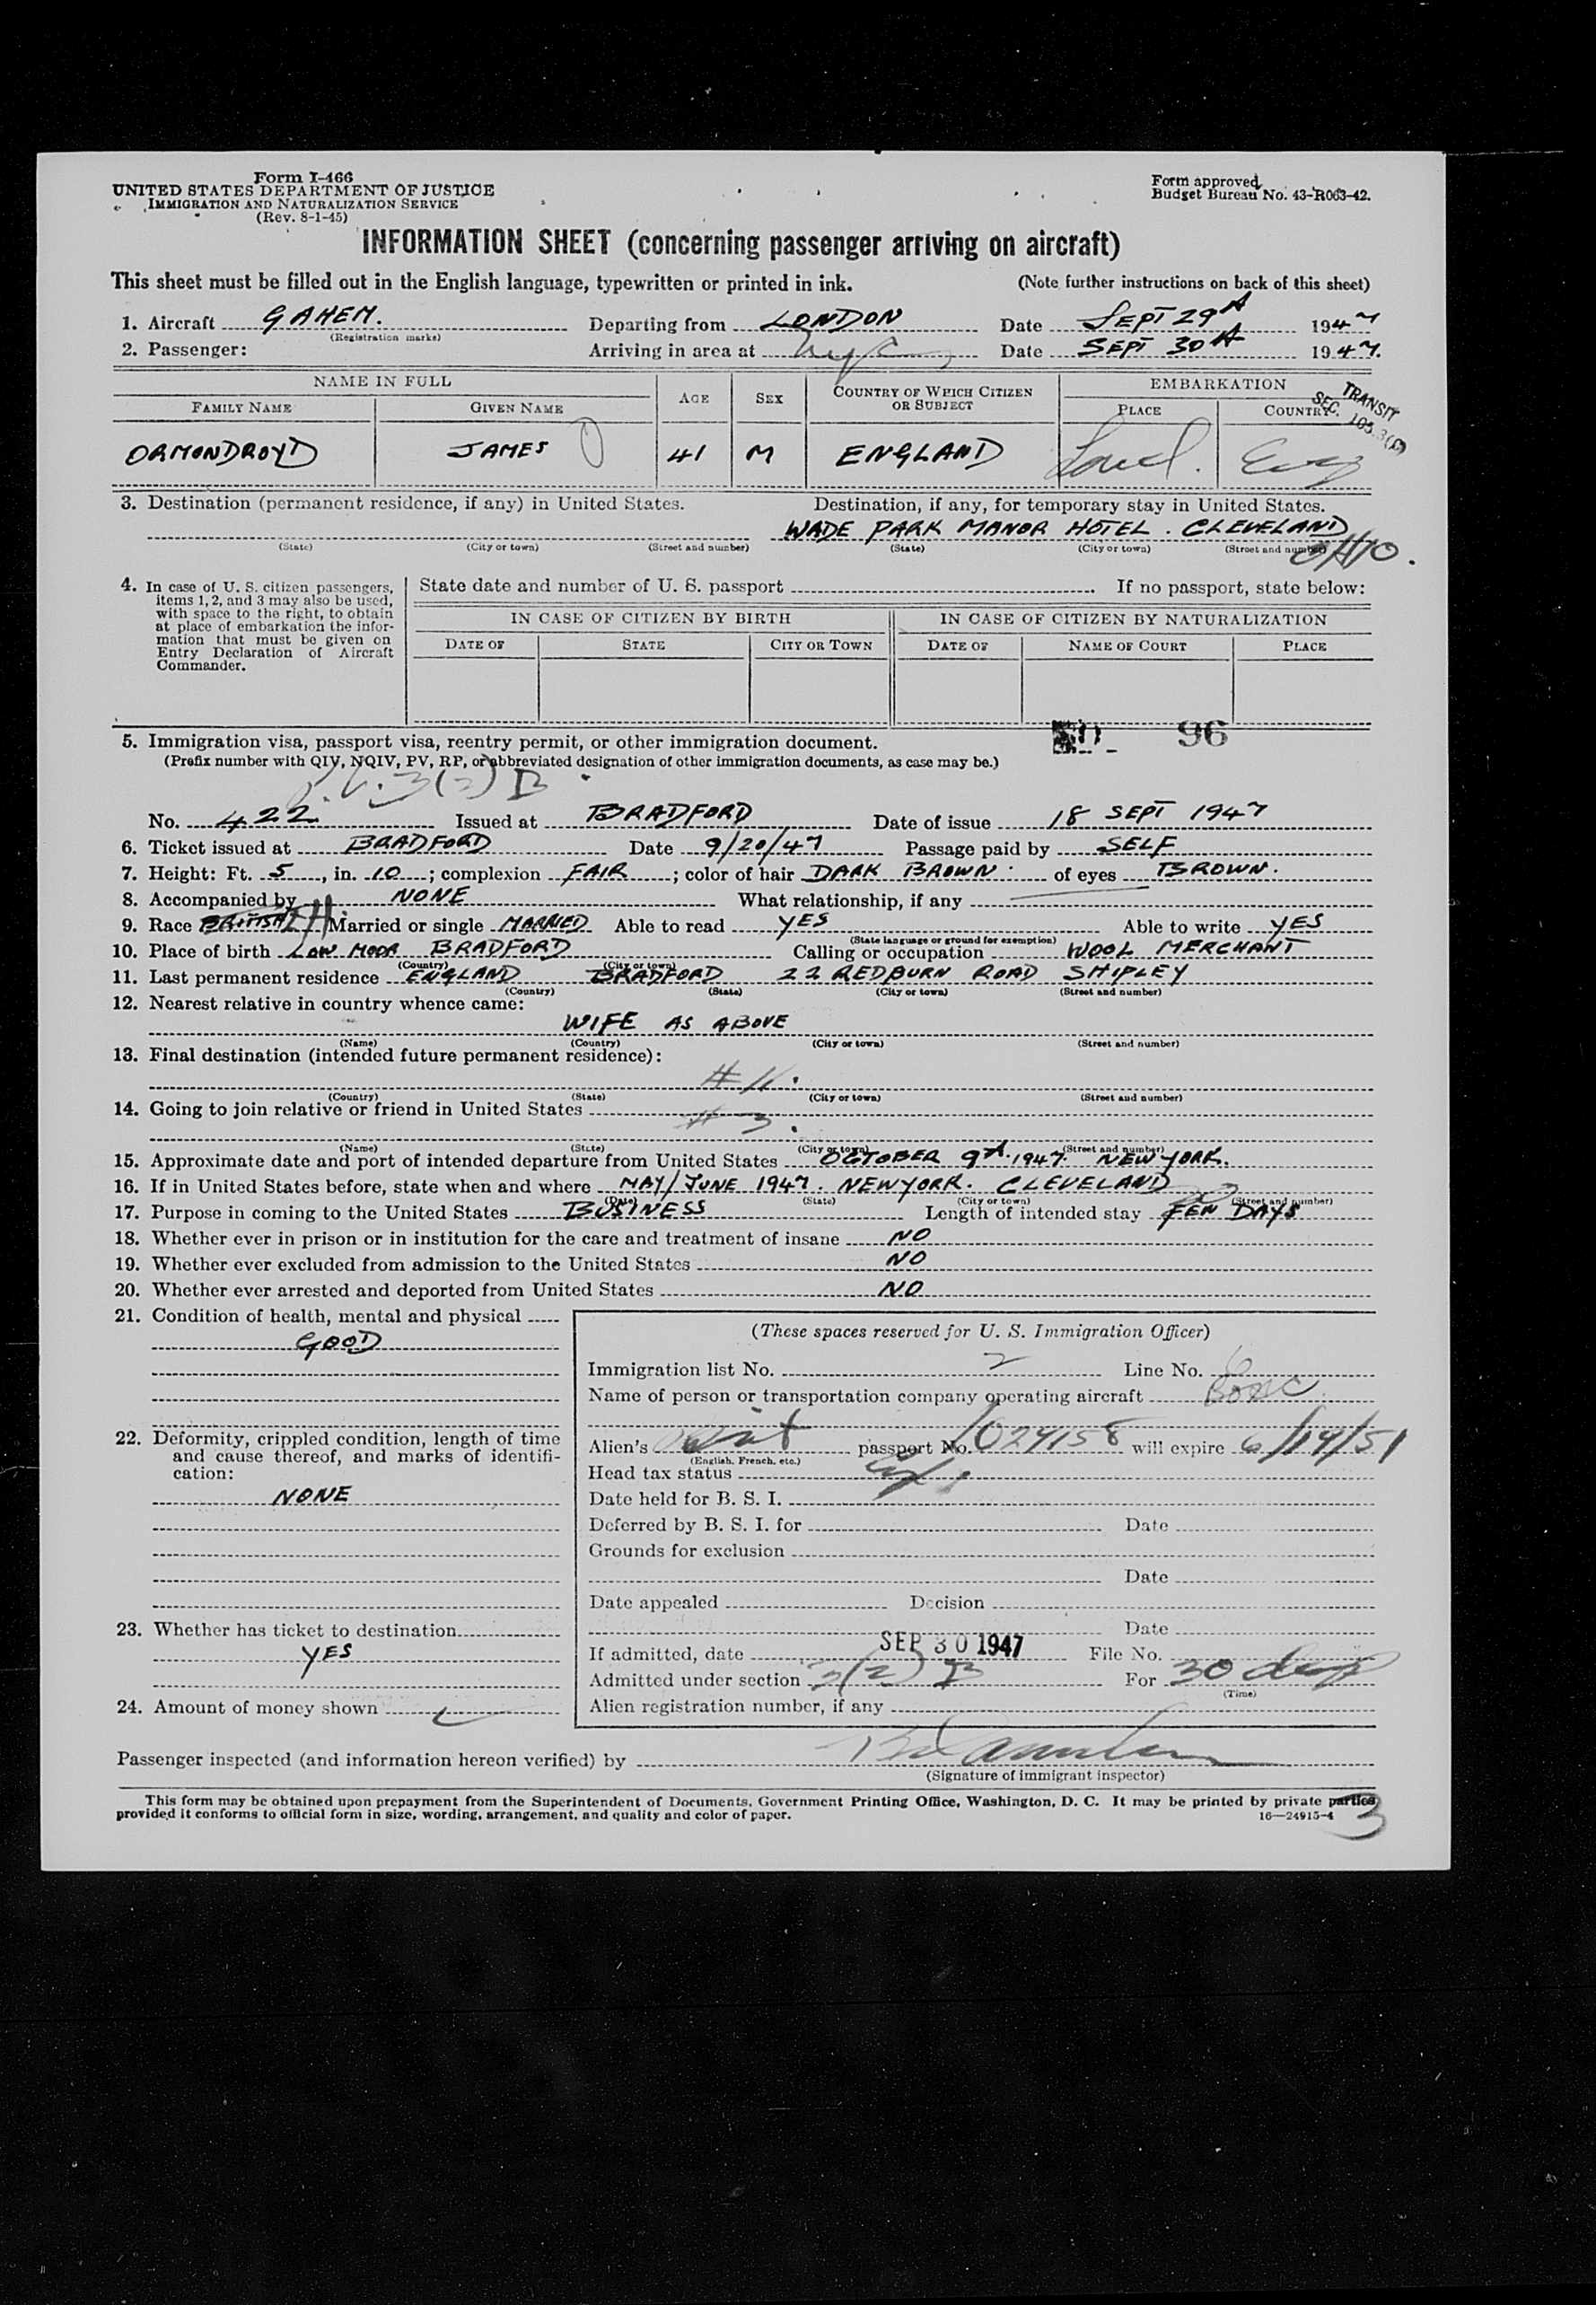 Form I-466
UNITED STATES DEPARTMENT OF JUSTICE
IMMIGRATION AND NATURALIZATION SERVICE
(Rev. 8-1-45)
Form approved.
Budget Bureau No. 43-R063-42.
INFORMATION SHEET (concerning passenger arriving on aircraft)
This sheet must be filled out in the English language, typewritten or printed in ink. (Note further instructions on back of this sheet)
1. Aircraft GAHEM. Departing from LONDON Date SEPT 29th 1947
(Registration marks)
2. Passenger: Arriving in area at NYC Date SEPT 30th 1947.
NAME IN FULL AGE SEX COUNTRY OF WHICH CITIZEN OR SUBJECT EMBARKATION
FAMILY NAME GIVEN NAME PLACE COUNTRY
TRANSIT
SEC. 103.3(b)
ORMONDROYD JAMES 41 M ENGLAND Lond. Eng
3. Destination (permanent residence, if any) in United States. Destination, if any, for temporary stay in United States.
WADE PARK MANOR HOTEL. CLEVELAND
OHIO.
(State) (City or town) (Street and number) (State) (City or town) (Street and number)
4. In case of U. S. citizen passengers, items 1, 2, and 3 may also be used, with space to the right, to obtain at place of embarkation the information that must be given on Entry Declaration of Aircraft Commander.
State date and number of U. S. passport If no passport, state below:
IN CASE OF CITIZEN BY BIRTH IN CASE OF CITIZEN BY NATURALIZATION
DATE OF STATE CITY OR TOWN DATE OF NAME OF COURT PLACE
96
5. Immigration visa, passport visa, reentry permit, or other immigration document.
(Prefix number with QIV, NQIV, PV, RP, or abbreviated designation of other immigration documents, as case may be.)
P.V. 3(2) B
No. 422 Issued at BRADFORD Date of issue 18 SEPT 1947
6. Ticket issued at BRADFORD Date 9/20/47 Passage paid by SELF
7. Height: Ft. 5, in. 10; complexion FAIR; color of hair DARK BROWN of eyes BROWN.
8. Accompanied by NONE What relationship, if any
9. Race BRITISH Married or single MARRIED Able to read YES Able to write YES
(State language or ground for exemption)
10. Place of birth LOW MOOR BRADFORD Calling or occupation WOOL MERCHANT
(Country) (City or town)
11. Last permanent residence ENGLAND BRADFORD 22 REDBURN ROAD SHIPLEY
(Country) (State) (City or town) (Street and number)
12. Nearest relative in country whence came:
WIFE AS ABOVE
(Name) (Country) (City or town) (Street and number)
13. Final destination (intended future permanent residence):
# 11.
(Country) (State) (City or town) (Street and number)
14. Going to join relative or friend in United States
# 3.
(Name) (State) (City or town) (Street and number)
15. Approximate date and port of intended departure from United States OCTOBER 9th 1947. NEW YORK.
16. If in United States before, state when and where MAY/JUNE 1947. NEW YORK. CLEVELAND
(Date) (State) (City or town) (Street and number)
17. Purpose in coming to the United States BUSINESS Length of intended stay FEW DAYS
18. Whether ever in prison or in institution for the care and treatment of insane NO
19. Whether ever excluded from admission to the United States NO
20. Whether ever arrested and deported from United States NO
21. Condition of health, mental and physical
GOOD
22. Deformity, crippled condition, length of time and cause thereof, and marks of identification:
NONE
23. Whether has ticket to destination
YES
24. Amount of money shown
(These spaces reserved for U. S. Immigration Officer)
Immigration list No. 2 Line No. 6
Name of person or transportation company operating aircraft BOAC
Alien's Brit passport No. 1029158 will expire 6/19/51
(English, French, etc.)
Head tax status
Date held for B. S. I.
Deferred by B. S. I. for Date
Grounds for exclusion
Date
Date appealed Decision
Date
If admitted, date SEP 30 1947 File No.
Admitted under section 3(2) B For 30 days
(Time)
Alien registration number, if any
Passenger inspected (and information hereon verified) by
(Signature of immigrant inspector)
This form may be obtained upon prepayment from the Superintendent of Documents, Government Printing Office, Washington, D. C. It may be printed by private parties
provided it conforms to official form in size, wording, arrangement, and quality and color of paper. 16—24915-4
3